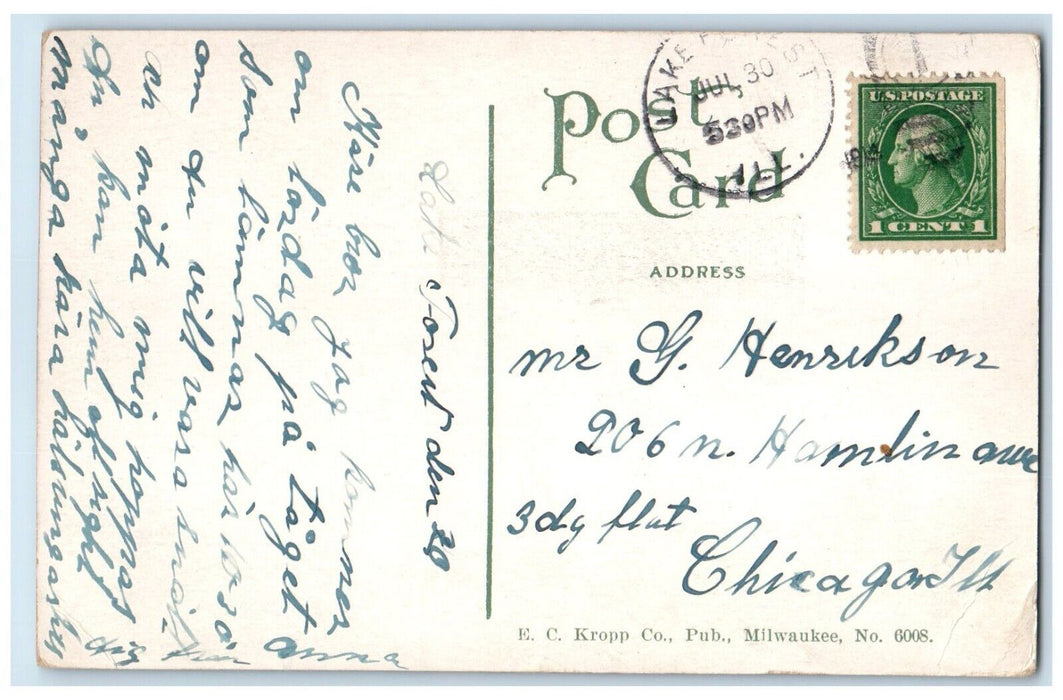 Lake Forest den 30
Käre bror jag kommer
om lördag på tåget
som lämnar här 10.30
om du vill vara snäll
och möta mig hoppas
du kan
många kära hälsningar
dig
anna
LAKE FOREST
JUL 30
5 30 PM
ILL.
U.S. POSTAGE
1 CENT 1
Post
Card
ADDRESS
mr G. Henrikson
206 n. Hamlin ave
3dg flat
Chicago Ill
E. C. Kropp Co., Pub., Milwaukee, No. 6008.